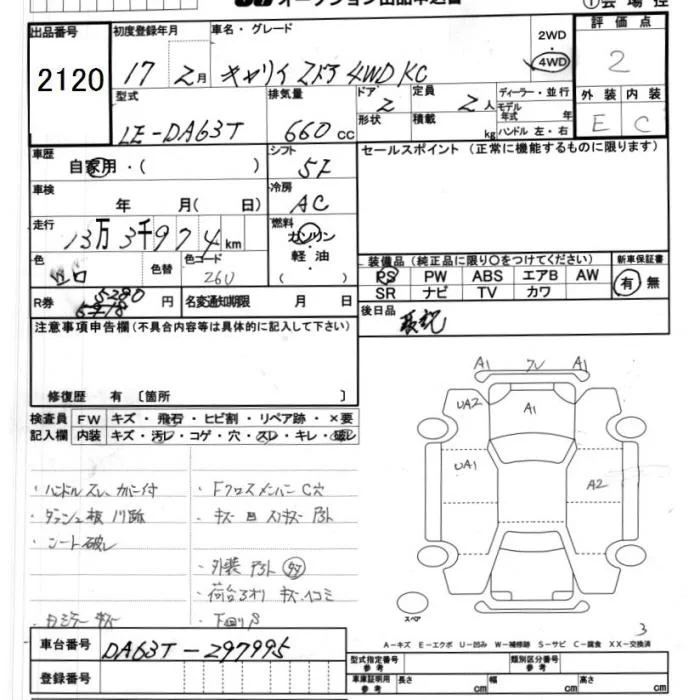 オークション出品申込書
出品番号 2120
初度登録年月 17 2月
車名・グレード キャリイ 2ドア 4WD KC
2WD 4WD
評価点 2
型式 LE-DA63T
排気量 660cc
ドア 2
形状
定員 2人
積載 kg
ディーラー・並行
モデル年式 年
ハンドル 左・右
外装 E
内装 C
車歴 自家用・( )
シフト 5F
セールスポイント (正常に機能するものに限ります)
車検 年 月( 日)
冷房 AC
走行 13万3千974km
燃料 ガソリン・軽油・( )
色 シロ
色替
色コード 26U
装備品 (純正品に限り○をつけてください)
新車保証書 有 無
PS PW ABS エアB AW
SR ナビ TV カワ
R券 5280 円
名変通知期限 月 日
後日品
注意事項申告欄 (不具合内容等は具体的に記入して下さい)
修復歴 有 〔箇所 〕
検査員記入欄
FW キズ・飛石・ヒビ割・リペア跡・×要
内装 キズ・汚レ・コゲ・穴・スレ・キレ・破レ
・ハンドルスレ、カバー付
・Fクロスメンバー C穴
・シート破レ
A1 A1
UA2 A1
UA1 A2
スペア
3
A-キズ E-エクボ U-凹み W-補修跡 S-サビ C-腐食 XX-交換済
車台番号 DA63T-297995
登録番号
型式指定番号 参考
類別区分番号 参考
車庫証明用 参考 長さ cm 幅 cm 高さ cm